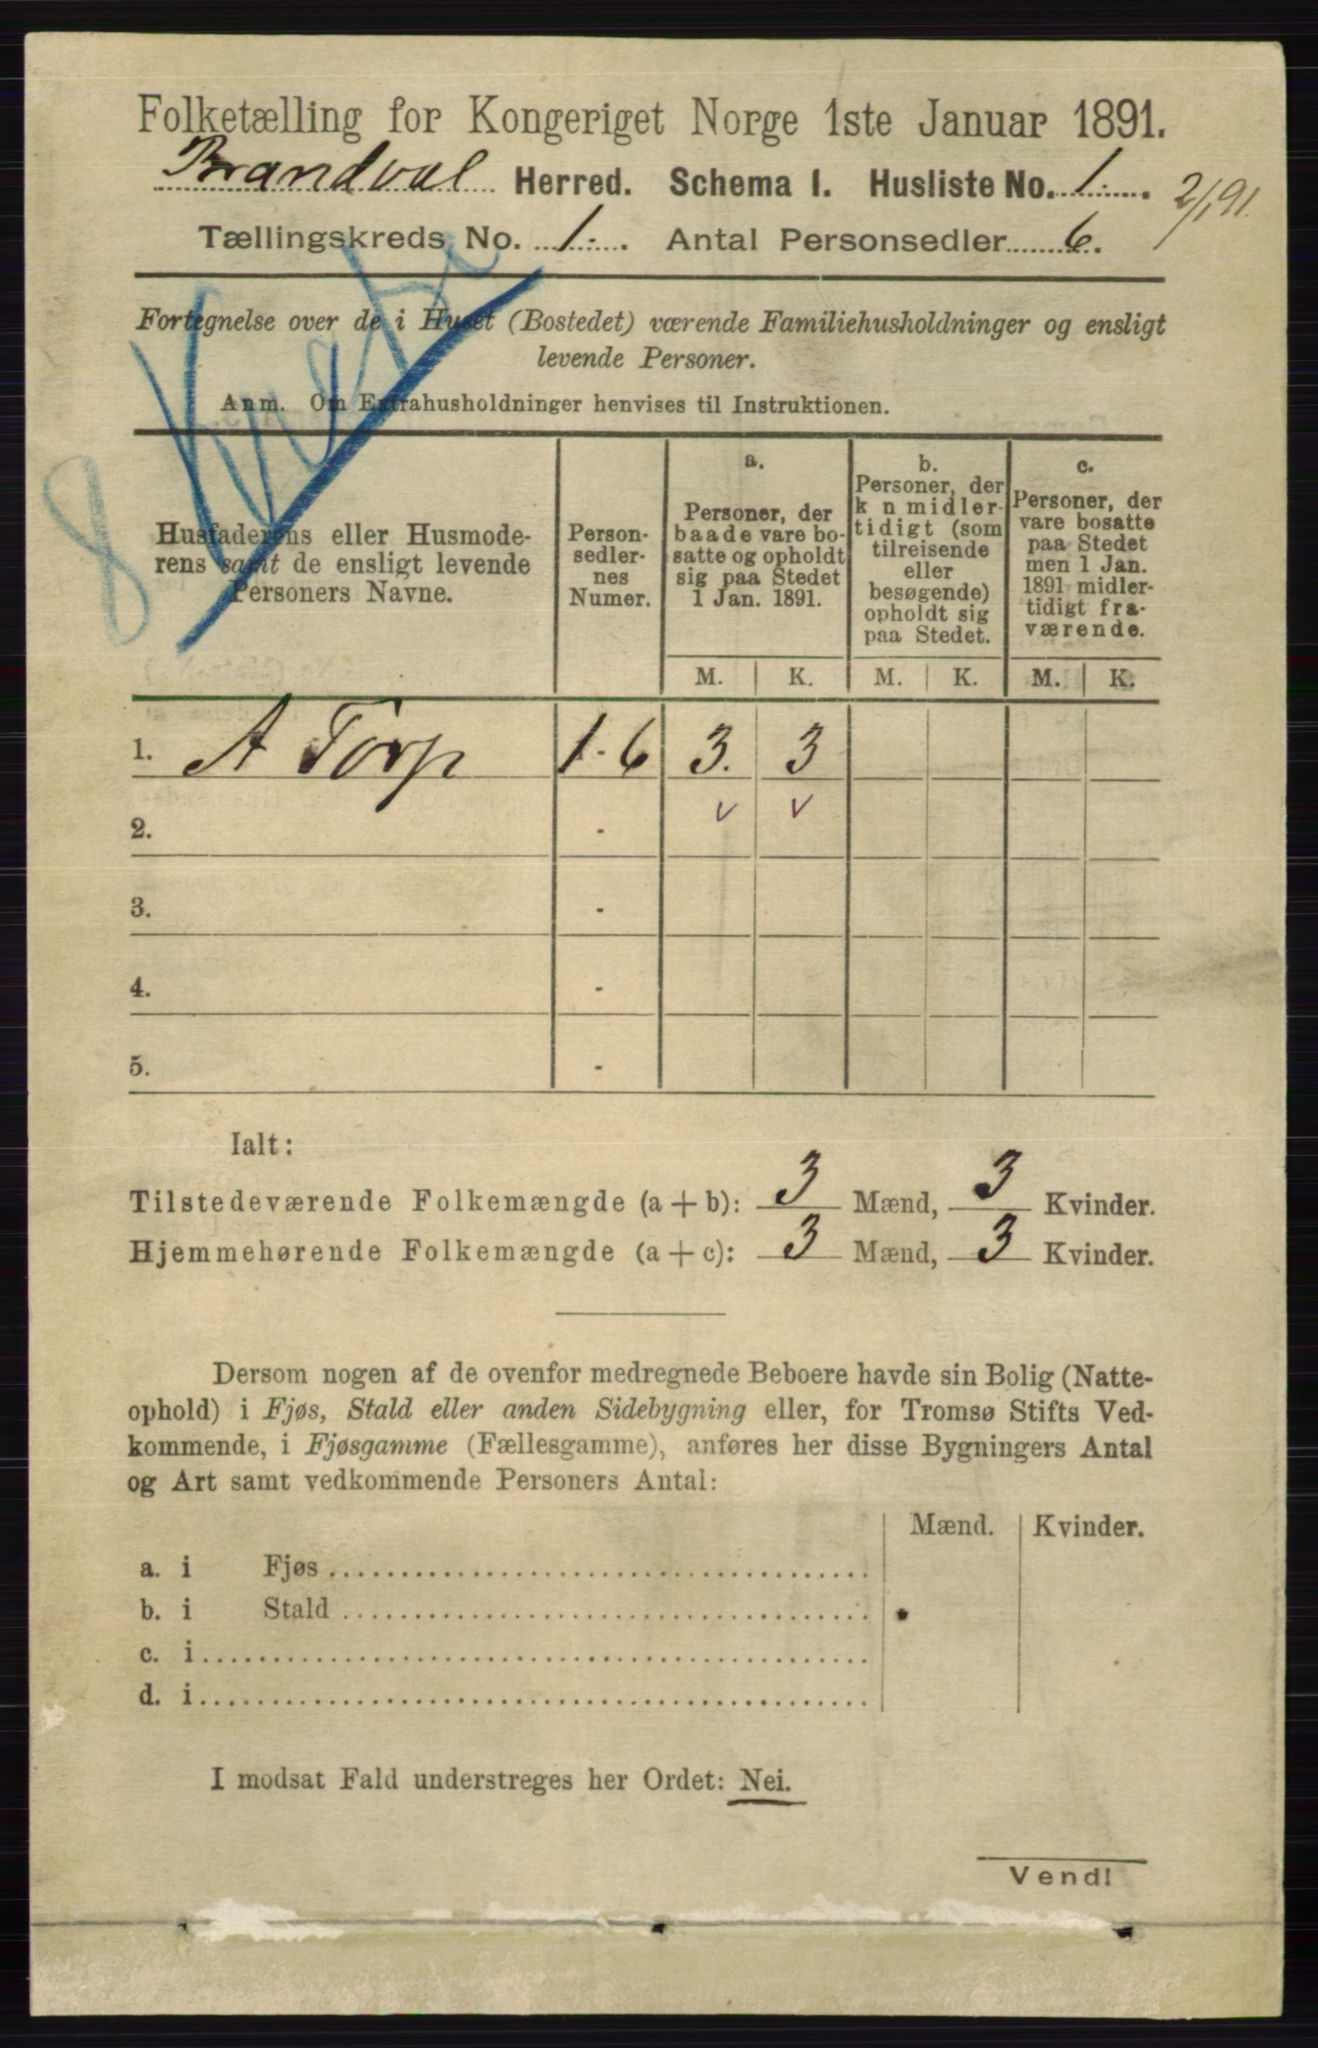 Folketælling for Kongeriget Norge 1ste Januar 1891.
Brandval Herred. Schema I. Husliste No. 1. 2/1 91.
Tællingskreds No. 1. Antal Personsedler 6.
Fortegnelse over de i Huset (Bostedet) værende Familiehusholdninger og ensligt
levende Personer.
Anm. Om Extrahusholdninger henvises til Instruktionen.
8
Husfaderens eller Husmode-
rens samt de ensligt levende
Personers Navne.
Person-
sedler-
nes
Numer.
a.
Personer, der
baade vare bo-
satte og opholdt
sig paa Stedet
1 Jan. 1891.
b.
Personer, der
k n midler-
tidigt (som
tilreisende
eller
besøgende)
opholdt sig
paa Stedet.
c.
Personer, der
vare bosatte
paa Stedet
men 1 Jan.
1891 midler-
tidigt fra-
værende.
M. K. M. K. M. K.
1. A Torp 1-6 3. 3
2. -
3. -
4. -
5. -
Ialt:
Tilstedeværende Folkemængde (a + b): 3 Mænd, 3 Kvinder.
Hjemmehørende Folkemængde (a + c): 3 Mænd, 3 Kvinder.
Dersom nogen af de ovenfor medregnede Beboere havde sin Bolig (Natte-
ophold) i Fjøs, Stald eller anden Sidebygning eller, for Tromsø Stifts Ved-
kommende, i Fjøsgamme (Fællesgamme), anføres her disse Bygningers Antal
og Art samt vedkommende Personers Antal:
Mænd. Kvinder.
a. i Fjøs
b. i Stald
c. i
d. i
I modsat Fald understreges her Ordet: Nei.
Vend!